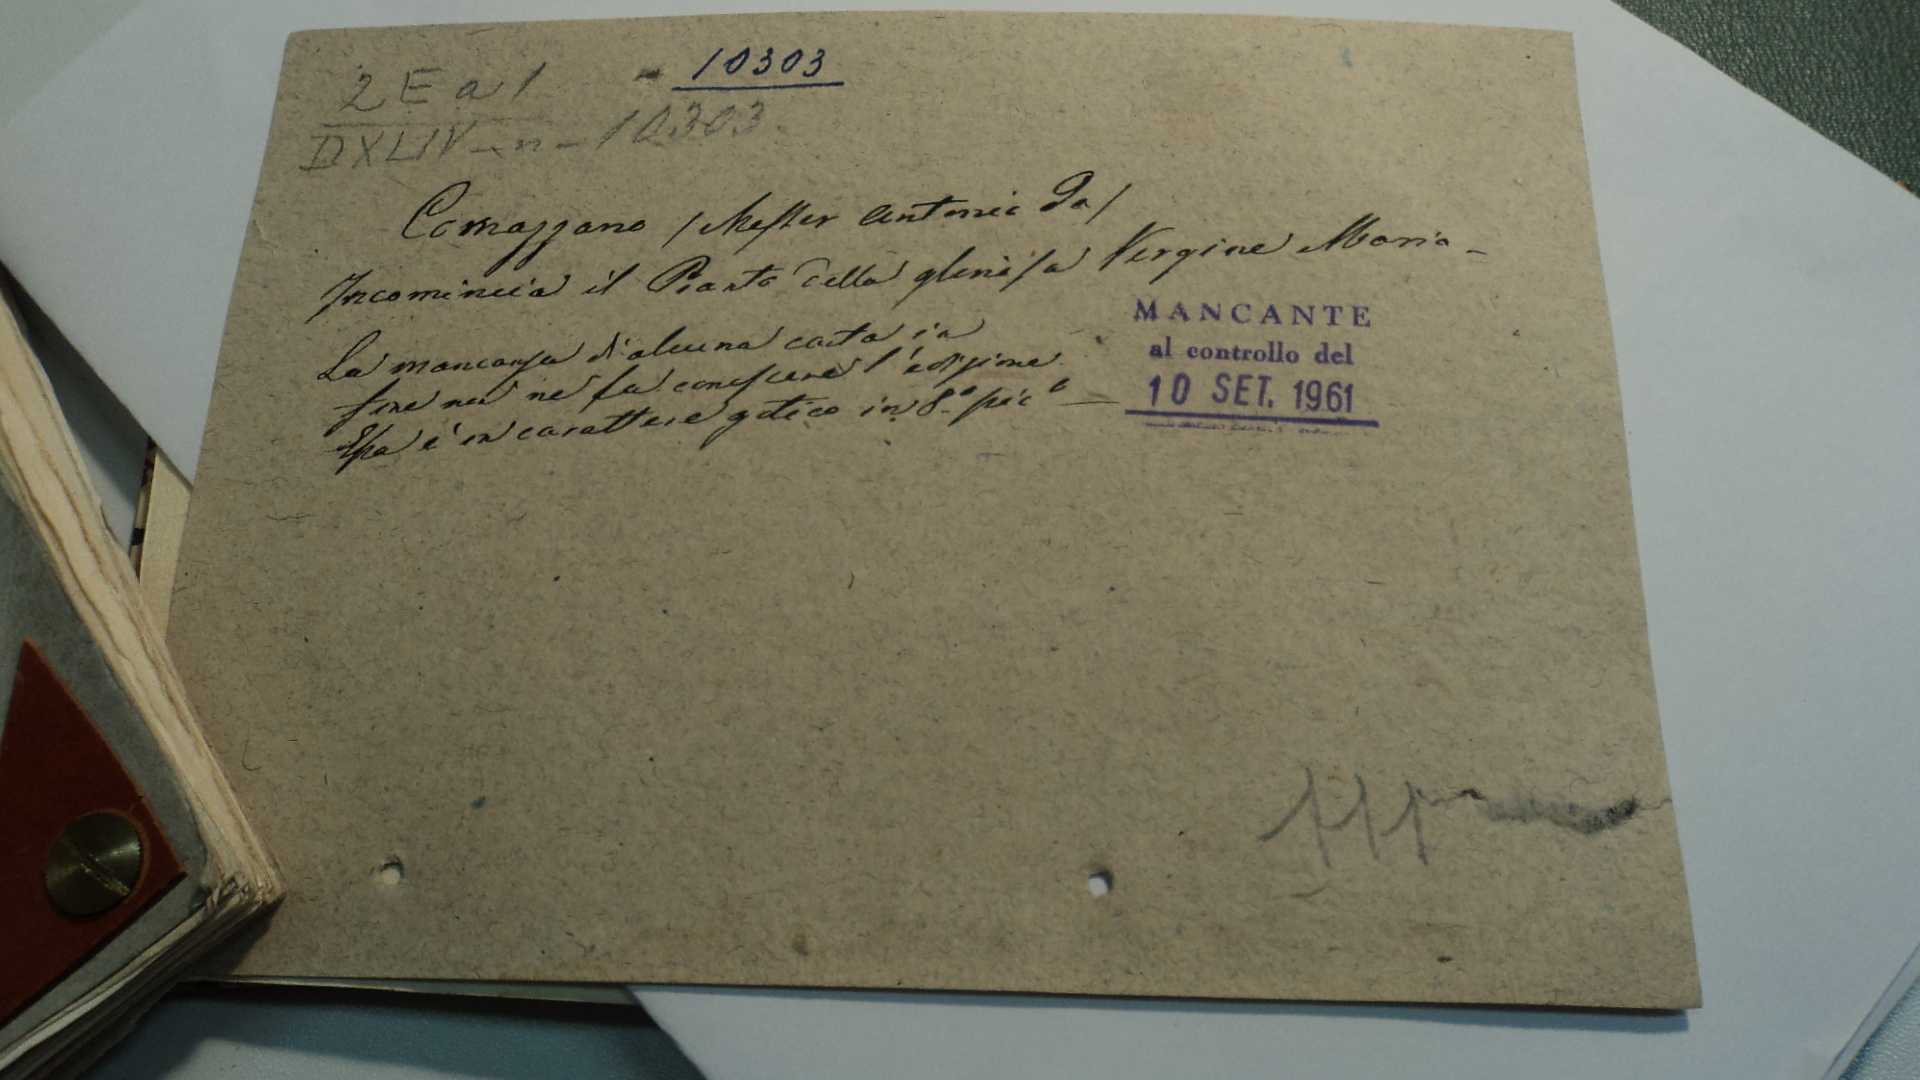 10303
2 E a 1
DXLIV - n - 10303.
Cornazzano / Messer Antonio Da /
Incomincia il Pianto della gloriosa Vergine Maria -
La mancanza di alcuna carta in
fine non ne fa conoscere l'edizione.
Essa è in carattere gotico in 8.° pic° —
MANCANTE
al controllo del
10 SET. 1961